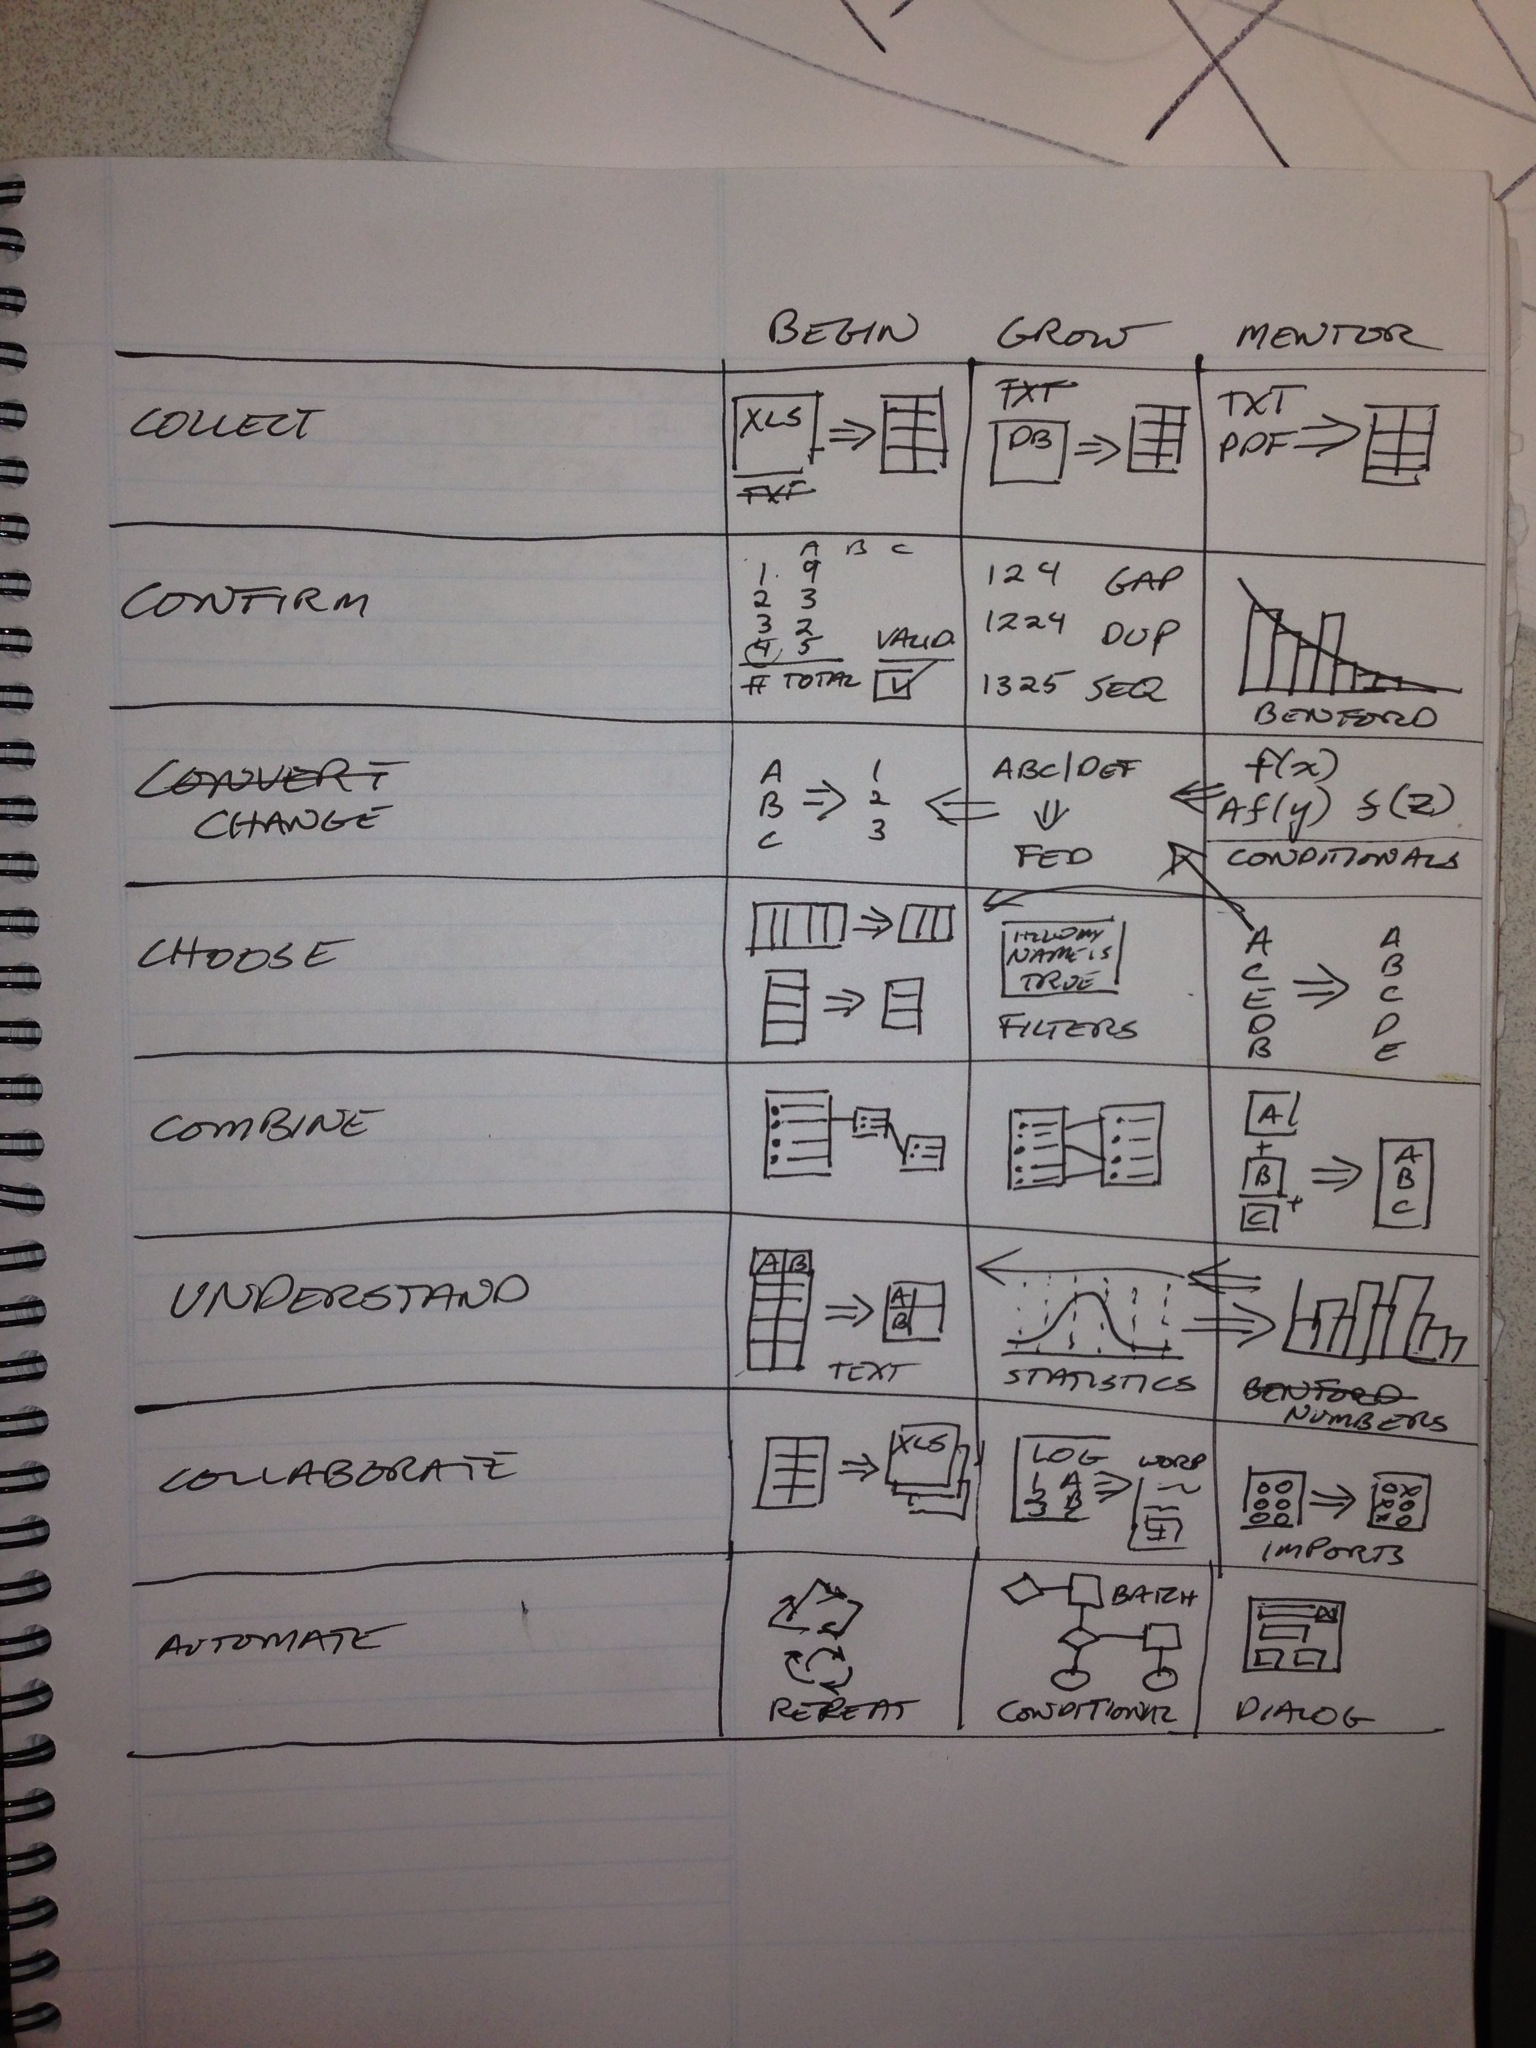 BEGIN GROW MENTOR
COLLECT
XLS
TXT
TXT
DB
TXT
PDF
CONFIRM
A B C
1. 9
2 3
3 2
4 5
# TOTAL
VALID.
124 GAP
1224 DUP
1325 SEQ
BENFORD
CONVERT
CHANGE
A 1
B 2
C 3
ABC/DEF
FED
f(x)
Af(y) f(z)
CONDITIONALS
CHOOSE
HELLO MY
NAME IS
TRUE
FILTERS
A A
C B
E C
D D
B E
COMBINE
A
+
B
C +
A
B
C
UNDERSTAND
A B
A
B
TEXT
STATISTICS
BENFORD
NUMBERS
COLLABORATE
XLS
LOG
1 A
2 B
3
WORD
IMPORTS
AUTOMATE
REPEAT
BATCH
CONDITIONAL
DIALOG